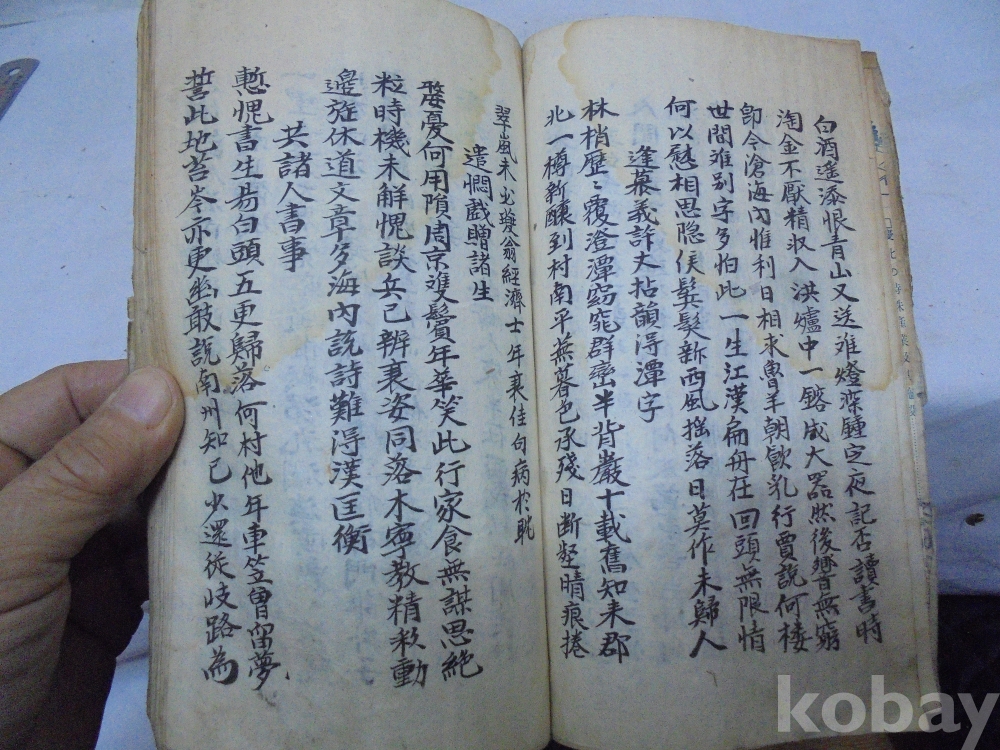 白酒遙添恨青山又送难燈深鍾定夜記否讀書時
淘金不厭精收入洪爐中一鎔成大器然後響無窮
即今滄海內惟利日相求魯羊朝飮乳行賈說何樓
世間难別字多怕此一生江漢扁舟在回頭無限情
何以慰相思隐侯鬓髮新西風摇落日莫作未歸人
逢蔡義許丈拈韻淂潭字
林梢歷〻覆澄潭窈窕群巒半背巖十載舊知来郡
北一樽新釀到村南平蕪暮色承残日断壑晴痕捲
翠嵐未必夔翁經濟士年衰佳句病於耽
遣悶戯贈諸生
嫠憂何用隕周京雙鬓年華笑此行家食無謀思絶
粒時機未解愧談兵已辨衰姿同落木寧教精彩動
邊旌休道文章多海內說詩難淂漢匡衡
共諸人書事
慙愧書生易白頭五更歸落何村他年車笠曾留夢
誓此地苔岑亦更幽敢說南州知己少還從岐路為
kobay